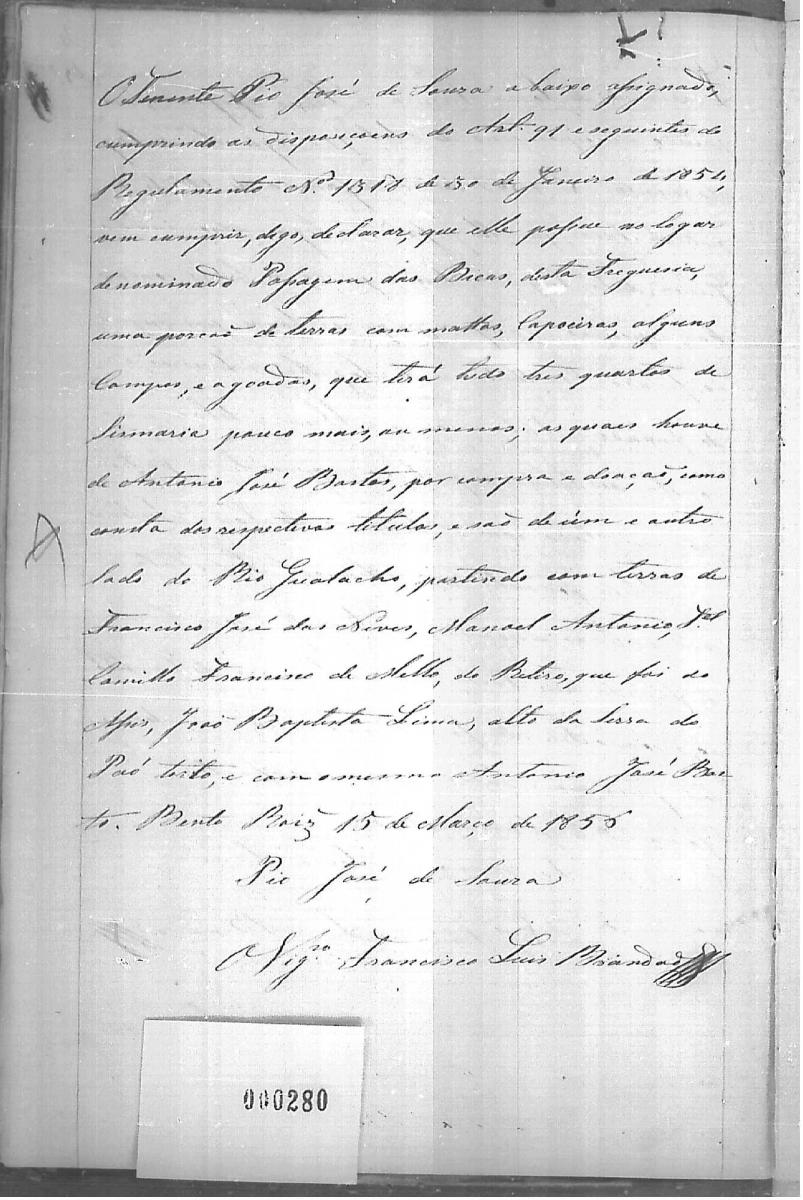 O Tenente Pio José de Souza abaixo assignado,
cumprindo as disposiçoens do Art. 91 e seguintes do
Regulamento Nº 1318 de 30 de Janeiro de 1854,
vem cumprir, digo, declarar, que elle possue no logar
denominado Passagem das Bicas, desta Freguesia,
uma porcaõ de terras com mattos, Capoeiras, alguns
Campos, e agoadas, que terá tudo tres quartos de
Sismaria pouco mais, ou menos; as quaes houve
de Antonio José Bastos, por compra e doaçaõ, como
consta dos respectivos titulos, e saõ de úm e outro
lado do Rio Gualacho, partindo com terras de
Francisco José das Neves, Manoel Antonio,
Camillo Francisco de Mello, do Retiro, que foi do
João Baptista Lima, alto da Serra do
Paó torto, e com o mesmo Antonio José Bas-
to. Bento Roiz 15 de Março de 1856
Pio José de Souza
O Vigro. Francisco Luis Brandaõ
000280